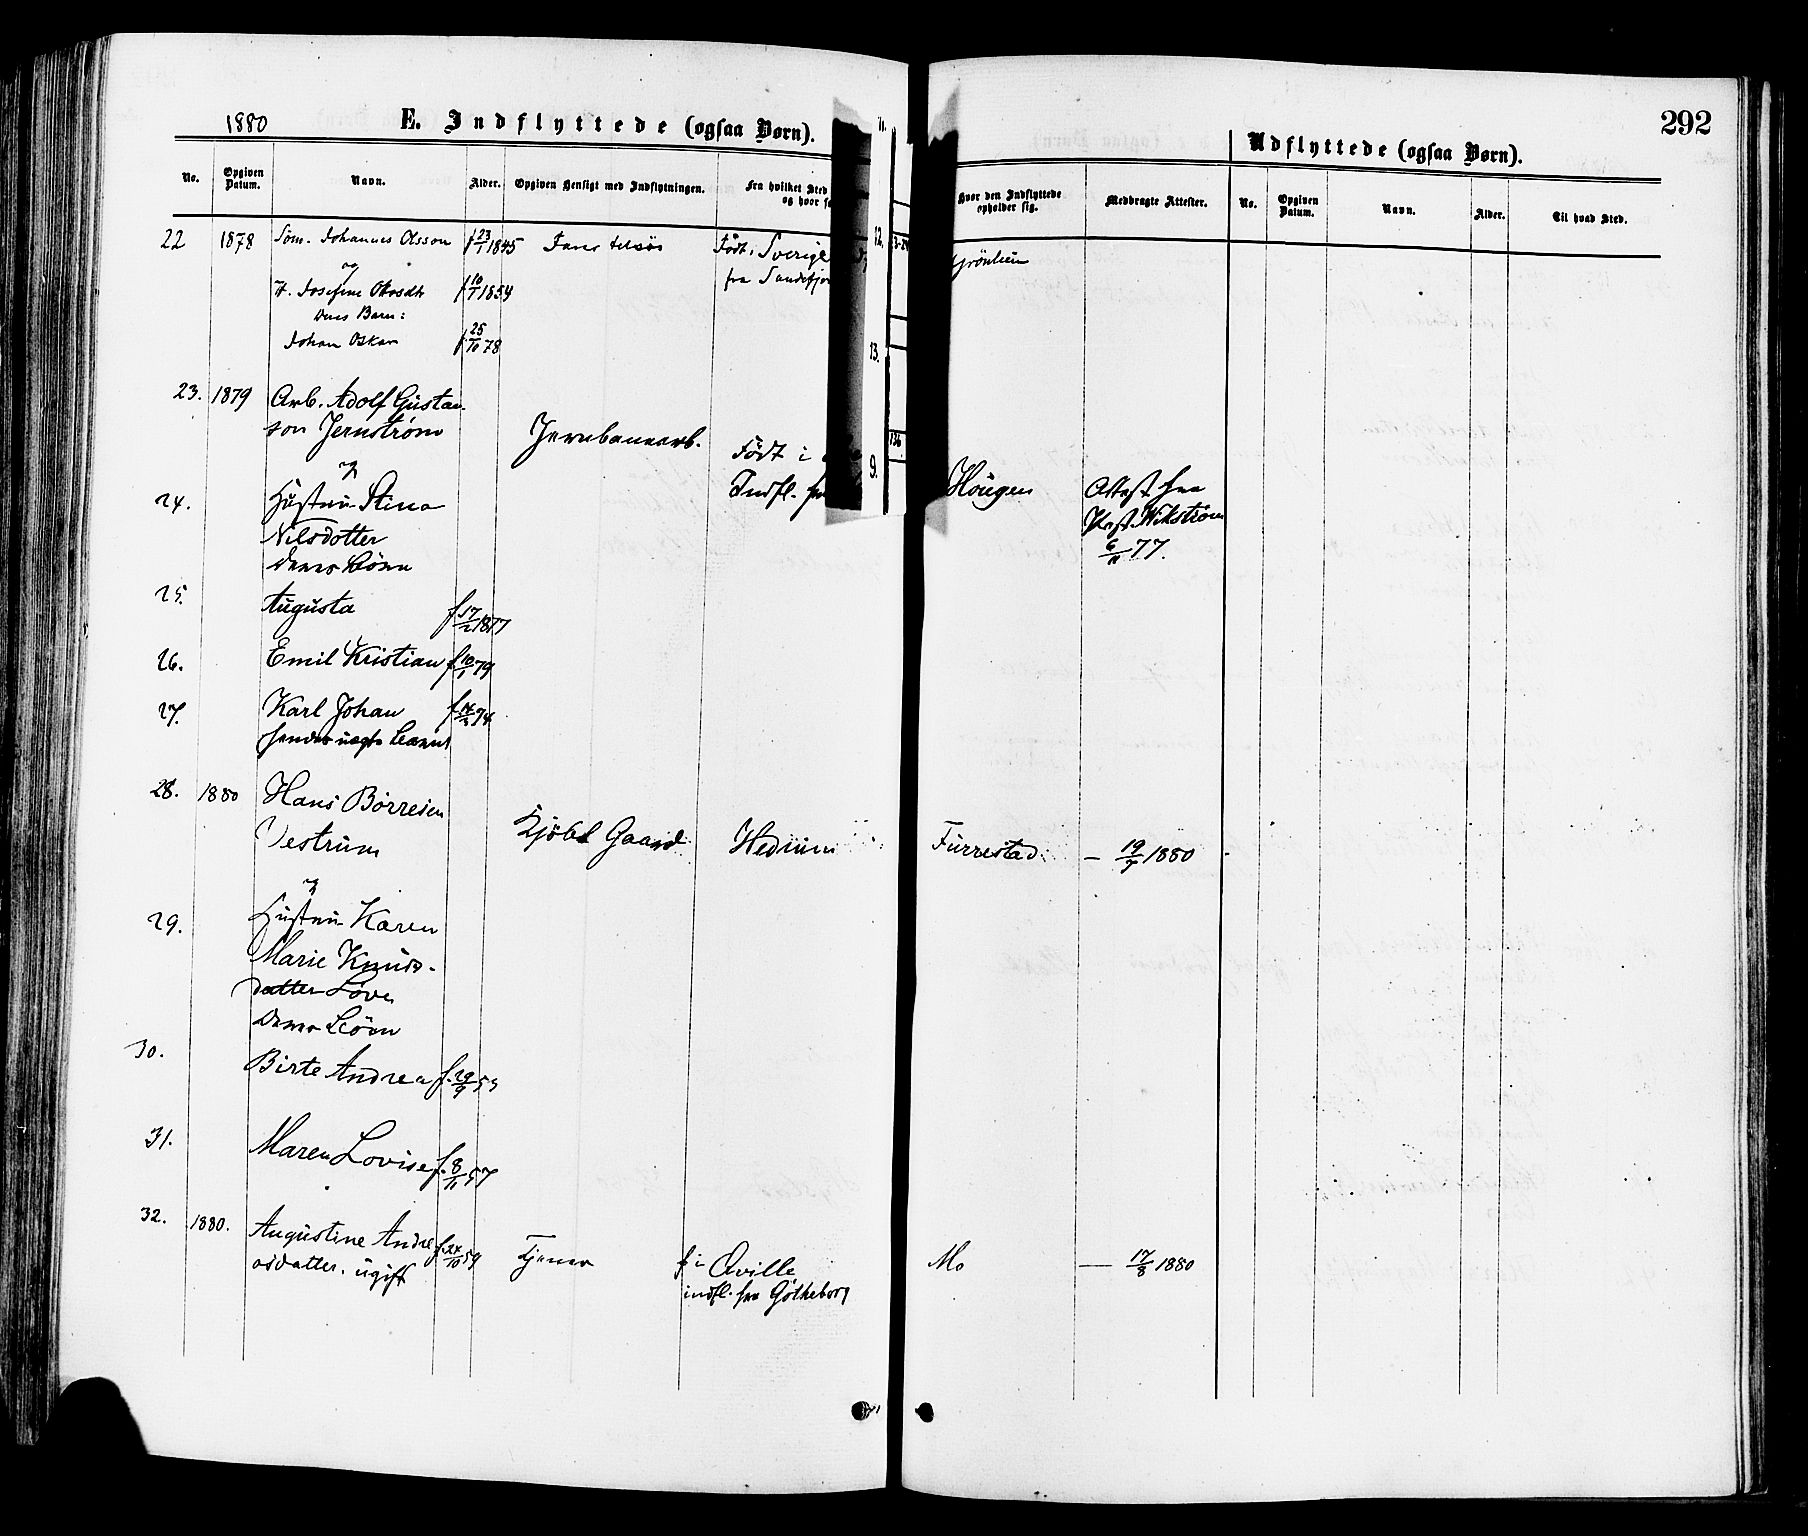 1880 E. Indflyttede (ogsaa Børn).
292
Udflyttede (ogsaa Børn).
No. Opgiven Datum. Navn. Alder. Opgiven Hensigt med Indflytningen. Fra hvilket Sted og hvor
Hvor den Indflyttede opholder sig. Medbragte Attester. No. Opgiven Datum. Navn. Alder. Til hvad Sted.
22 1878 Søm. Johannes Olsson f 23/1 1845 Farer tilsøs Født i Sverige
og fra Sandefj
H. Josefine f 10/1 1854
Deres Barn:
Johan Oskar f. 25/10 78
Grönlien
23. 1879 Arb. Adolf Gustav-
son Jernström Jernbanearb. Född i
og Indfl. fra
24. Hustru Stina
Nilsdotter
deres Börn
Hougen Attest fra
Past. Wikström
6/11 77.
25. Augusta f 17/2 1877
26. Emil Kristian f 10/1 79
27. Karl Johan f 14/3 74
hendes uægte Barn
28. 1880 Hans Börresen
Vestrum Kjöbt Gaard Hedrum Furrestad — 19/7 1880
og
29. Hustru Karen
Marie Knuds-
datter Löve
deres Börn
30. Birte Andrea f. 29/9 53
31. Maren Lovise f. 8/11 57
32. 1880. Augustine Andre f. 24/10 59 Tjener f i Qville Mo — 17/8 1880
asdatter. ugift indfl. fra Götheborg
12.
13.
9.